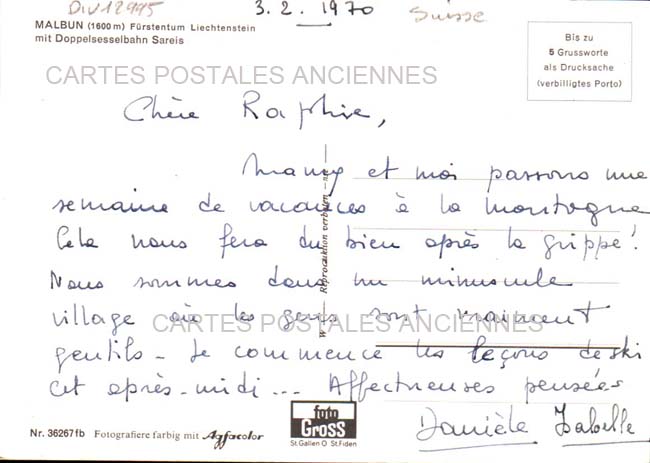 Div12995
3.2.1970
Suisse
MALBUN (1600 m) Fürstentum Liechtenstein
mit Doppelsesselbahn Sareis
Bis zu
5 Grussworte
als Drucksache
(verbilligtes Porto)
CARTES POSTALES ANCIENNES
Chère
Mamy et moi passons une
semaine de vacances à la montagne
Cela nous fera du bien après la grippe!
Nous sommes dans un minuscule
village où les gens sont vraiment
CARTES POSTALES ANCIENNES
gentils - Je commence les leçons de ski
cet après-midi... Affectueuses pensées
Danièle Isabelle
Reproduktion verboten
foto
GROSS
St. Gallen O St. Fiden
Nr. 36267fb Fotografiere farbig mit Agfacolor